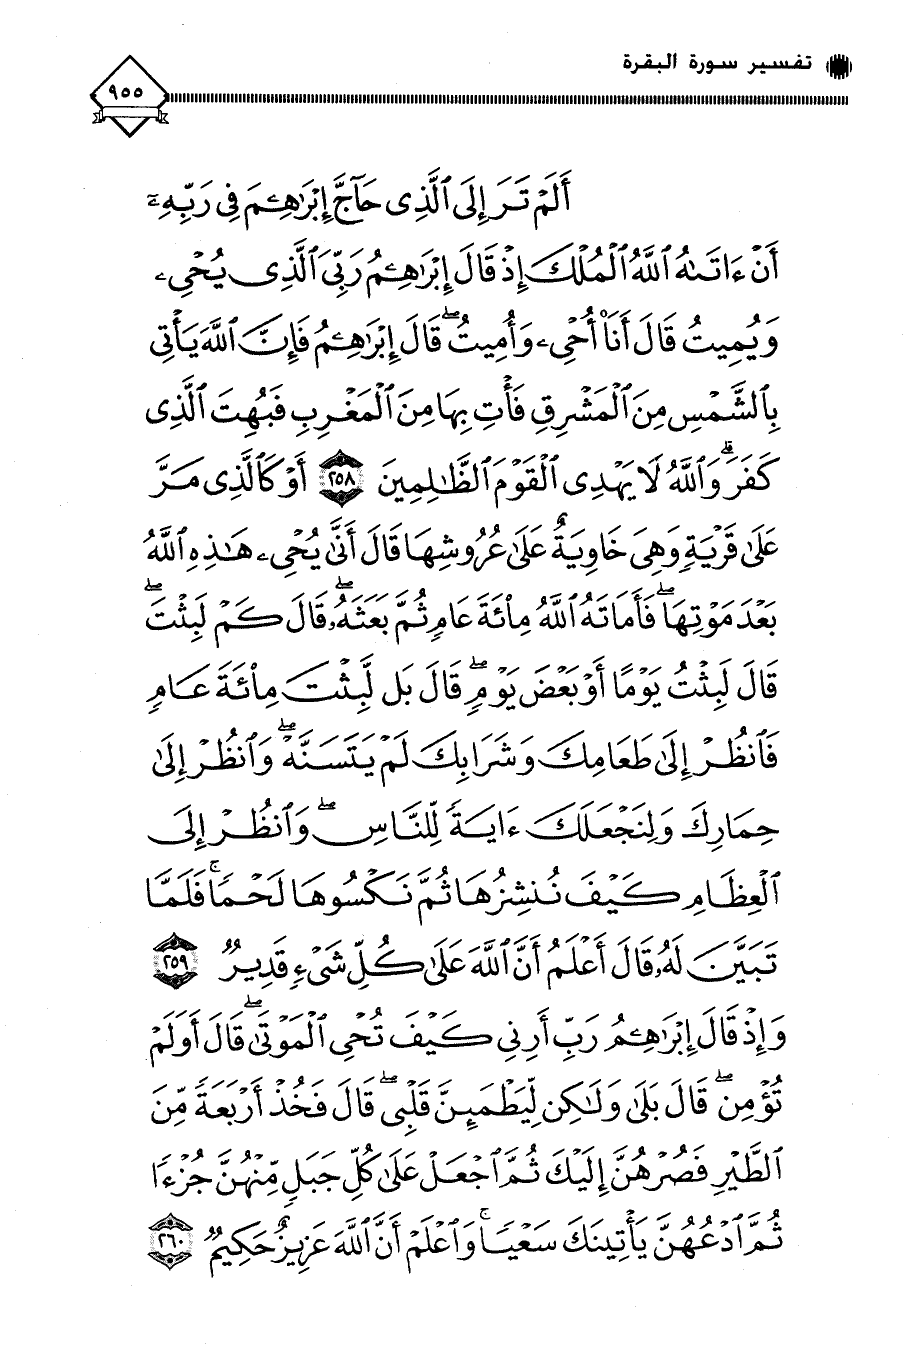 تفسير سورة البقرة
٩٥٥
أَلَمْ تَرَ إِلَى ٱلَّذِى حَآجَّ إِبْرَٰهِـۧمَ فِى رَبِّهِۦٓ
أَنْ ءَاتَىٰهُ ٱللَّهُ ٱلْمُلْكَ إِذْ قَالَ إِبْرَٰهِـۧمُ رَبِّىَ ٱلَّذِى يُحْىِۦ
وَيُمِيتُ قَالَ أَنَا۠ أُحْىِۦ وَأُمِيتُ ۖ قَالَ إِبْرَٰهِـۧمُ فَإِنَّ ٱللَّهَ يَأْتِى
بِٱلشَّمْسِ مِنَ ٱلْمَشْرِقِ فَأْتِ بِهَا مِنَ ٱلْمَغْرِبِ فَبُهِتَ ٱلَّذِى
كَفَرَ ۗ وَٱللَّهُ لَا يَهْدِى ٱلْقَوْمَ ٱلظَّـٰلِمِينَ ٢٥٨ أَوْ كَٱلَّذِى مَرَّ
عَلَىٰ قَرْيَةٍ وَهِىَ خَاوِيَةٌ عَلَىٰ عُرُوشِهَا قَالَ أَنَّىٰ يُحْىِۦ هَـٰذِهِ ٱللَّهُ
بَعْدَ مَوْتِهَا ۖ فَأَمَاتَهُ ٱللَّهُ مِا۟ئَةَ عَامٍ ثُمَّ بَعَثَهُۥ ۖ قَالَ كَمْ لَبِثْتَ ۖ
قَالَ لَبِثْتُ يَوْمًا أَوْ بَعْضَ يَوْمٍ ۖ قَالَ بَل لَّبِثْتَ مِا۟ئَةَ عَامٍ
فَٱنظُرْ إِلَىٰ طَعَامِكَ وَشَرَابِكَ لَمْ يَتَسَنَّهْ ۖ وَٱنظُرْ إِلَىٰ
حِمَارِكَ وَلِنَجْعَلَكَ ءَايَةً لِّلنَّاسِ ۖ وَٱنظُرْ إِلَى
ٱلْعِظَامِ كَيْفَ نُنشِزُهَا ثُمَّ نَكْسُوهَا لَحْمًا ۚ فَلَمَّا
تَبَيَّنَ لَهُۥ قَالَ أَعْلَمُ أَنَّ ٱللَّهَ عَلَىٰ كُلِّ شَىْءٍ قَدِيرٌ ٢٥٩
وَإِذْ قَالَ إِبْرَٰهِـۧمُ رَبِّ أَرِنِى كَيْفَ تُحْىِ ٱلْمَوْتَىٰ ۖ قَالَ أَوَلَمْ
تُؤْمِن ۖ قَالَ بَلَىٰ وَلَـٰكِن لِّيَطْمَئِنَّ قَلْبِى ۖ قَالَ فَخُذْ أَرْبَعَةً مِّنَ
ٱلطَّيْرِ فَصُرْهُنَّ إِلَيْكَ ثُمَّ ٱجْعَلْ عَلَىٰ كُلِّ جَبَلٍ مِّنْهُنَّ جُزْءًا
ثُمَّ ٱدْعُهُنَّ يَأْتِينَكَ سَعْيًا ۚ وَٱعْلَمْ أَنَّ ٱللَّهَ عَزِيزٌ حَكِيمٌ ٢٦٠